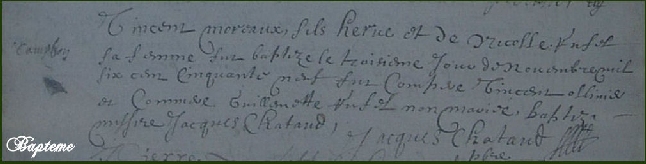 Vincent moreaux, fils herve et de Nicolle
sa femme fut baptize le troisieme Jour de Novembre mil
six cen Cinquante neuf fut Compere Vincent ollivier
et Commere Guillemette non mariee, baptize
missire Jacques Chataud,
Jacques Chataud
Bapteme